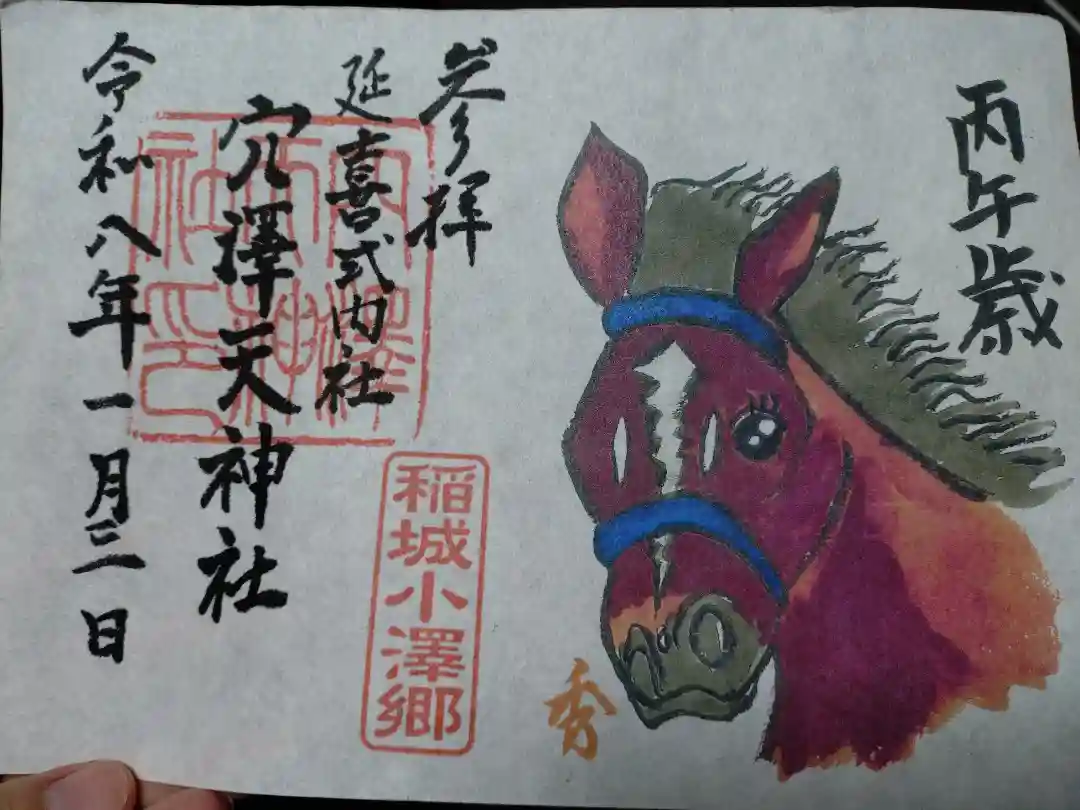 丙午歳
参拝
延喜式内社
穴澤天神社
令和八年一月三日
稲城小澤郷
秀